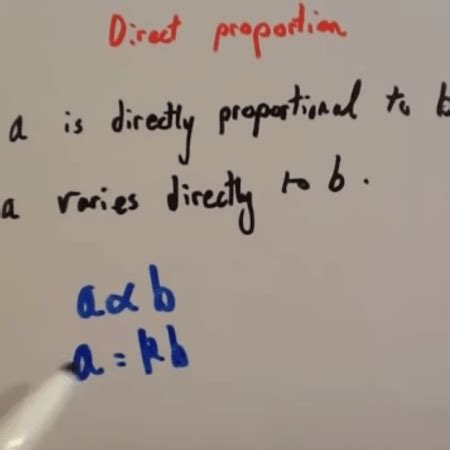 Direct proportion
a is directly proportional to b
a varies directly to b.
a ∝ b
a = kb